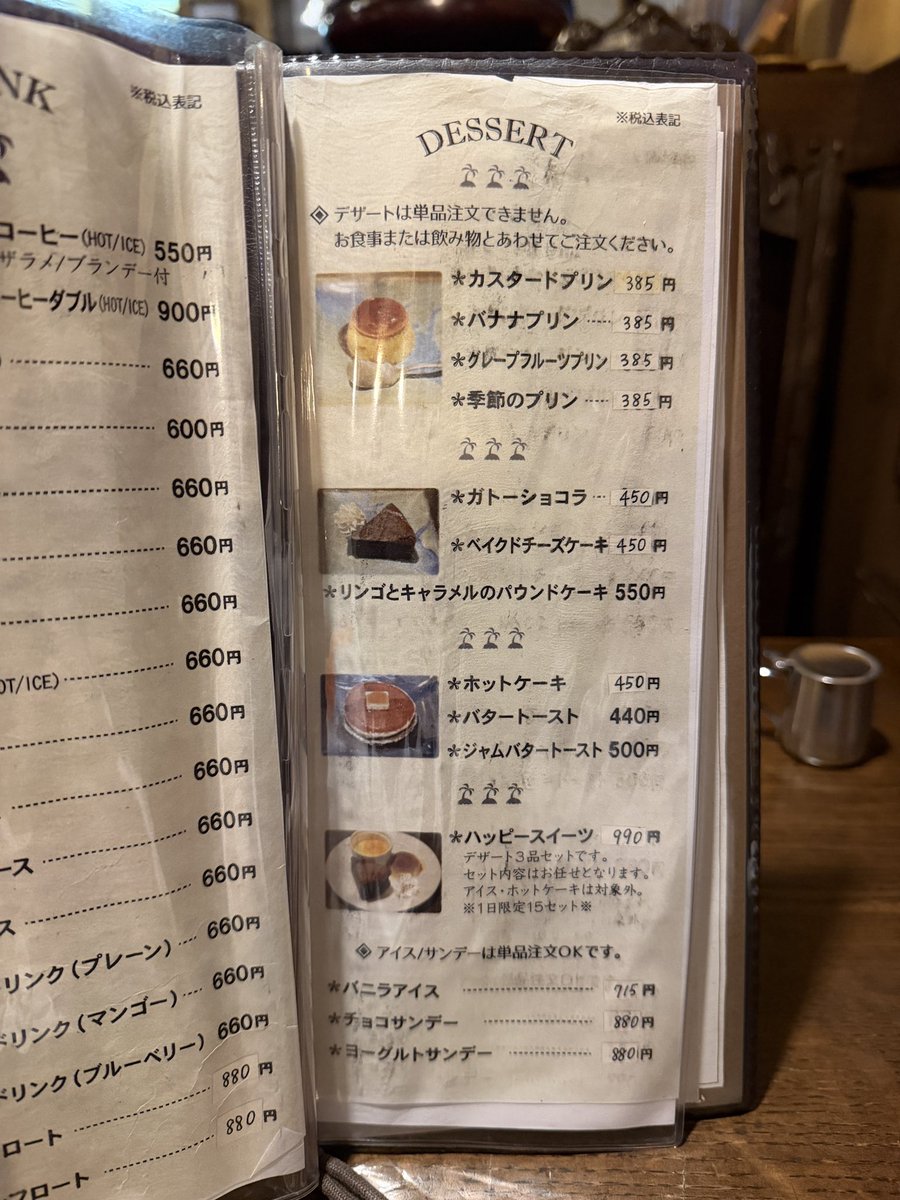 NK
※税込表記
コーヒー(HOT/ICE) 550円
ザラメ/ブランデー付
ーヒーダブル(HOT/ICE) 900円
660円
600円
660円
660円
660円
OT/ICE) 660円
660円
660円
ース 660円
ス 660円
リンク(プレーン) 660円
ドリンク(マンゴー) 660円
ドリンク(ブルーベリー) 660円
ロート 880円
フロート 880円
DESSERT
※税込表記
◈ デザートは単品注文できません。
お食事または飲み物とあわせてご注文ください。
*カスタードプリン 385円
*バナナプリン 385円
*グレープフルーツプリン 385円
*季節のプリン 385円
*ガトーショコラ 450円
*ベイクドチーズケーキ 450円
*リンゴとキャラメルのパウンドケーキ 550円
*ホットケーキ 450円
*バタートースト 440円
*ジャムバタートースト 500円
*ハッピースイーツ 990円
デザート3品セットです。
セット内容はお任せとなります。
アイス・ホットケーキは対象外。
※1日限定15セット※
◈ アイス/サンデーは単品注文OKです。
*バニラアイス 715円
*チョコサンデー 880円
*ヨーグルトサンデー 880円